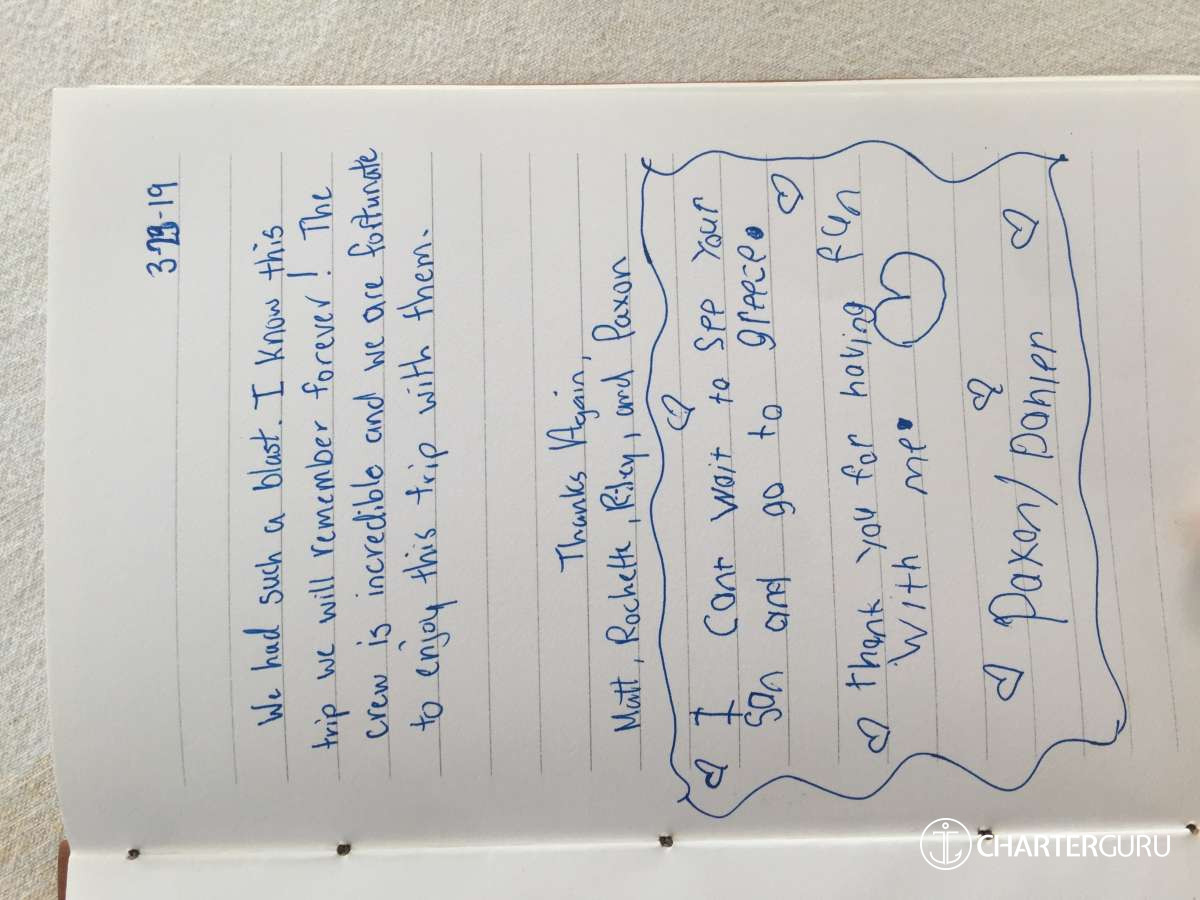 3-23-19
We had such a blast. I know this
trip we will remember forever! The
crew is incredible and we are fortunate
to enjoy this trip with them.
Thanks Again,
Matt, Rochelle, Riley, and Paxon
I Cant wait to see your
san and go to greece.
thank you for having fun
with me.
Paxon/
CHARTERGURU